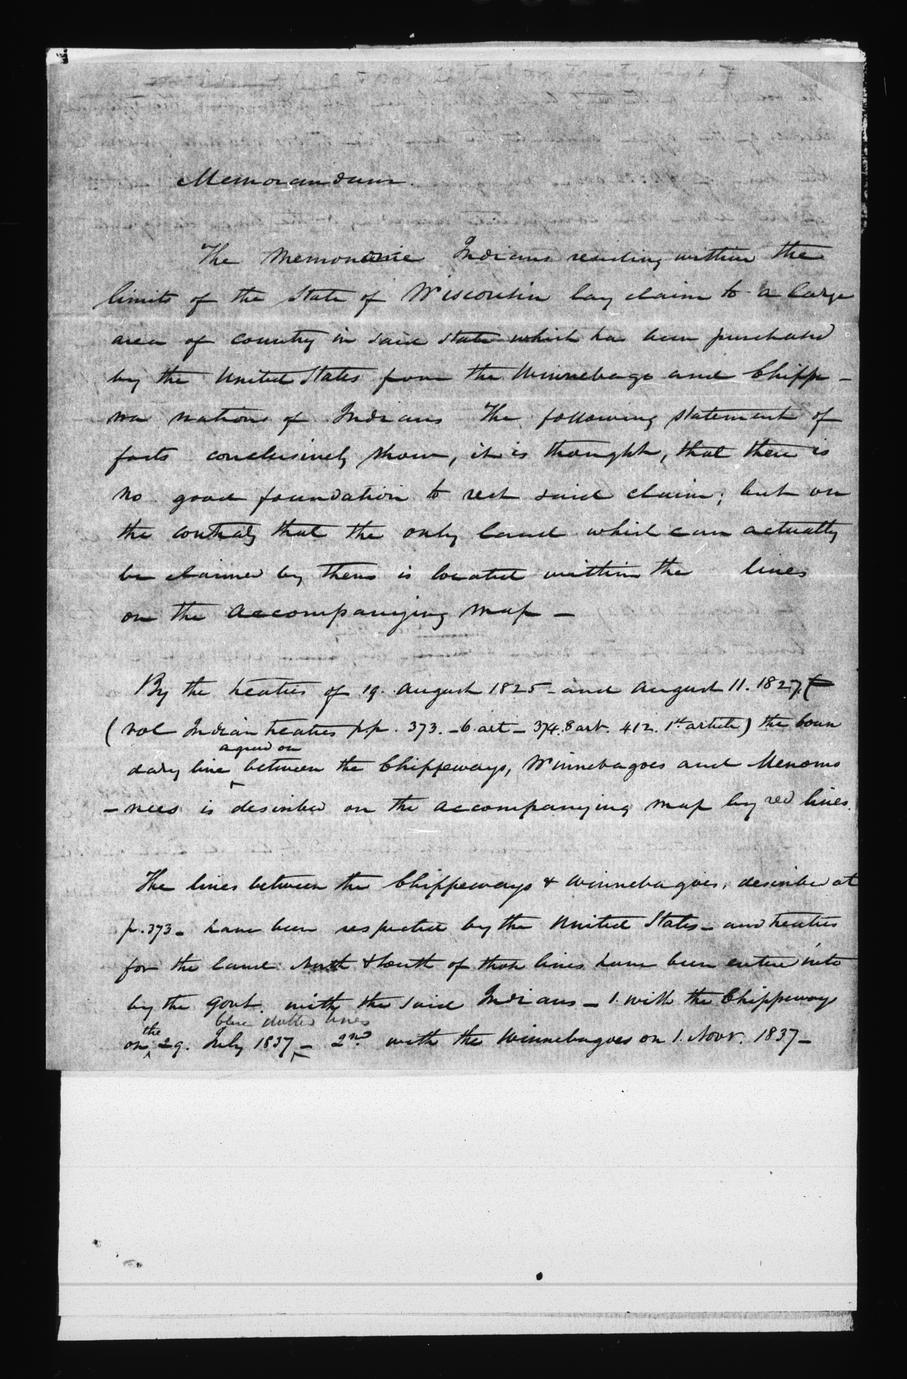 Memorandum.
The Menomonie Indians residing within the
limits of the State of Wisconsin lay claim to a large
area of country in said State which has been purchased
by the United States from the Winnebago and Chipp-
wa nations of Indians The following statement of
facts conclusively show, it is thought, that there is
no good foundation to rest said claim; but on
the contrary that the only land which can actually
be claimed by them is located within the lines
on the accompanying map —
By the treaties of 19. August 1825 - and August 11. 1827
(vol Indian treaties pp. 373. - 6 art - 374. 8 art. 412. 1st article) the boun
agreed on
dary line between the Chippeways, Winnebagoes and Menomo
-nees is described on the accompanying map by red lines.
The lines between the Chippeways & Winnebagoes, described at
p. 373 - have been respected by the United States - and treaties
for the land North & South of that lines have been entered into
by the Govt. with the said Indians - 1. with the Chippeways
the blue dotted lines
on 29. July 1837 - 2nd with the Winnebagoes on 1. Novr. 1837 -